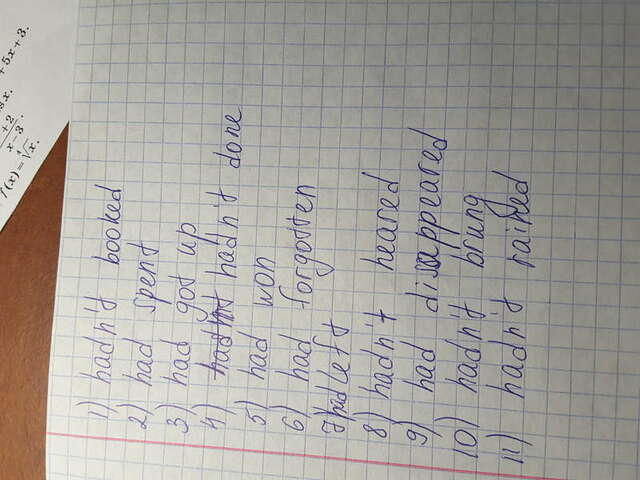 +2
x-3.
5x+3.
f(x)=∜x.
1) hadn't booked
2) had spent
3) had got up
4) hadn't done
5) had won
6) had forgotten
7) had left
8) hadn't heared
9) had disappeared
10) hadn't brung
11) hadn't rained